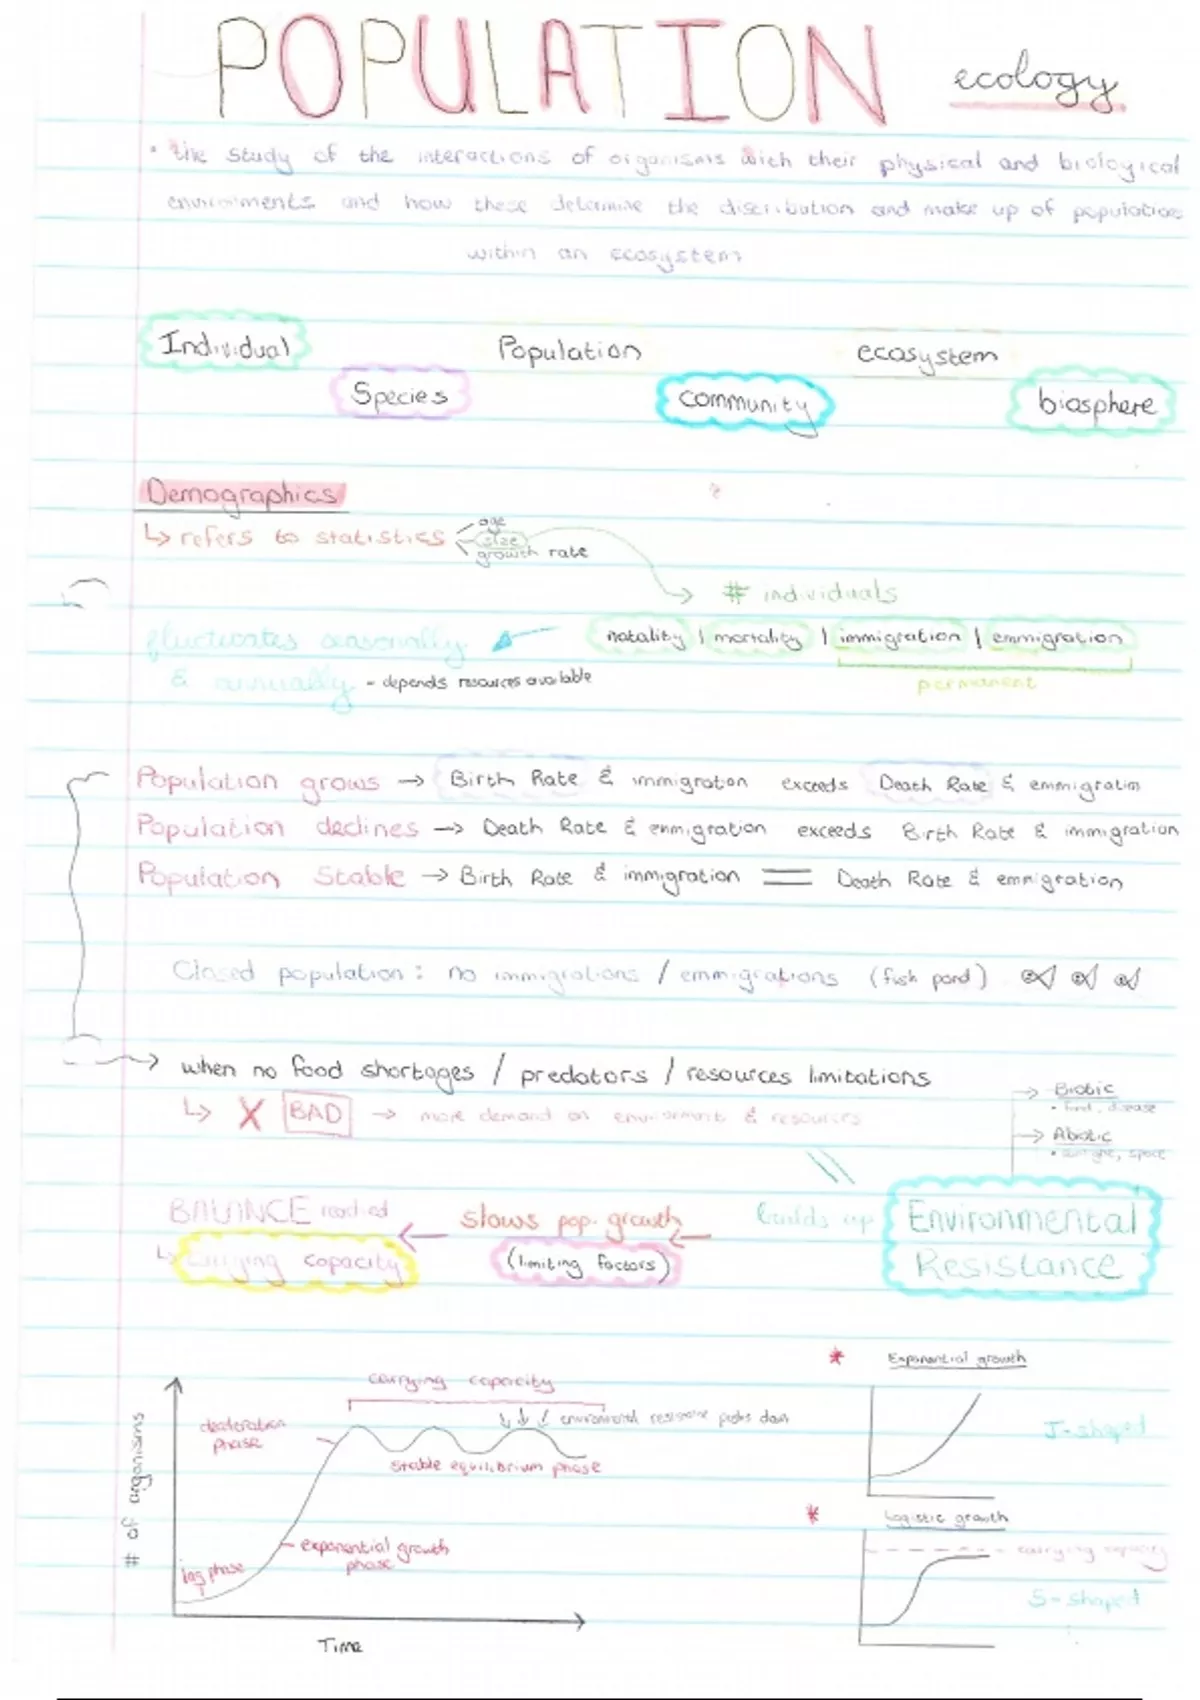 POPULATION ecology
• the study of the interactions of organisms with their physical and biological
enviroments and how these determine the distribution and make up of populations
within an ecosystem
Individual Population ecosystem
Species community biosphere
Demographics
↳ refers to statistics
age
size
growth rate
# individuals
fluctuates seasonally
natality | mortality | immigration | emmigration
& annually - depends resources available
permanent
Population grows → Birth Rate & immigration exceeds Death Rate & emmigration
Population declines → Death Rate & emmigration exceeds Birth Rate & immigration
Population Stable → Birth Rate & immigration = Death Rate & emmigration
Closed population : no immigrations / emmigrations (fish pond)
→ when no food shortages / predators / resources limitations
↳ X BAD → more demand on enviroment & resources
→ Biotic
• food, disease
→ Abiotic
• sunlight, space
BALANCE reached ← slows pop. growth ← builds up Environmental
↳ carrying capacity (limiting factors) Resistance
carrying capacity
deceleration
phase
↓ ↓ ↓ environmental resistance pushes down
stable equilibrium phase
exponential growth
phase
lag phase
# of organisms
Time
* Exponential growth
J-shaped
* Logistic growth
carrying capacity
S-shaped